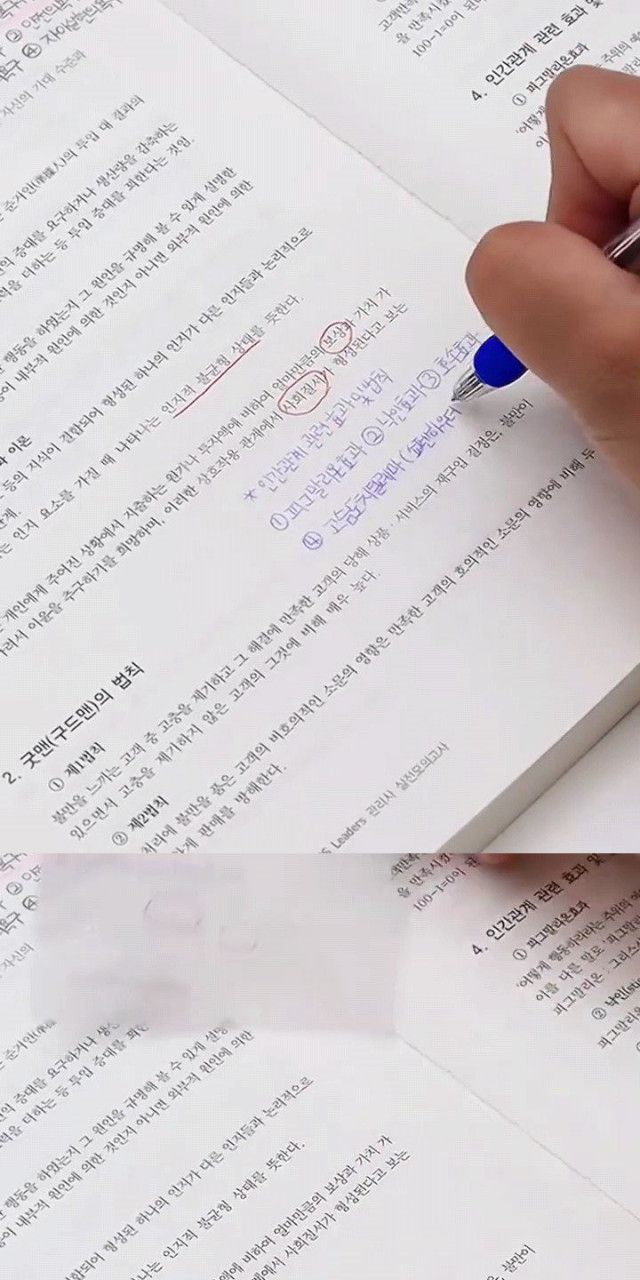 ② 안전
욕구 ④ 자아실현의 욕구
자신의 기대 수준과
준거인(準據人)의 투입 대 결과의
증대를 요구하거나 생산량을 감축하는
더하는 등 투입 증대를 꾀한다는 것임.
행동을 하였는지 그 원인을 규명해 볼 수 있게 설명한
이 내부적 원인에 의한 것인지 아니면 외부적 원인에 의한
이론
등의 지식이 결합되어 형성된 하나의 인지가 다른 인지들과 논리적으로
관계.
는 인지 요소를 가질 때 나타나는 인지적 불균형 상태를 뜻한다.
개인에게 주어진 상황에서 지출하는 원가나 투자액에 비하여 얼마만큼의 보상과 가치가
따라서 이윤을 추구하기를 희망하며, 이러한 상호작용 관계에서 사회질서가 형성된다고 보는
* 인간관계 관련 효과 및 법칙
① 피그말리온효과 ② 낙인효과 ③ 호손효과
④ 고슴도치딜레마 (쇼펜하우어
2. 굿맨(구드맨)의 법칙
① 제1법칙
불만을 느끼는 고객 중 고충을 제기하고 그 해결에 만족한 고객의 당해 상품·서비스의 재구입 결정은, 불만이
있으면서 고충을 제기하지 않은 고객의 그것에 비해 매우 높다.
② 제2법칙
처리에 불만을 품은 고객의 비호의적인 소문의 영향은 만족한 고객의 호의적인 소문의 영향에 비해 두
게 판매를 방해한다.
Leaders 관리사 실전모의고사
고객만족
을 만족시
100-1=0이 된
4. 인간관계 관련 효과 및
① 피그말리온효과
'어떻게
주위의 예
② 안전
욕구 ④
자신의
준거인
증대를 요구하거나
더하는 등 투입 증대를 꾀
행동을 하였는지 그 원인을 규명해 볼 수 있게 설명
이 내부적 원인에 의한 것인지 아니면 외부적 원인에 의한
결합되어 형성된 하나의 인지가 다른 인지들과 논리적으로
나는 인지적 불균형 상태를 뜻한다.
액에 비하여 얼마만큼의 보상과 가치가
에서 사회질서가 형성된다고 보는
불만이
을 만족시켰
100-1=0이 된
4. 인간관계 관련 효과 및
① 피그말리온효과
'어떻게 행동하리라는 주위의 예
이를 다른 말로 '피그말
피그말리온 : 그리스
② 낙인
피그말리온